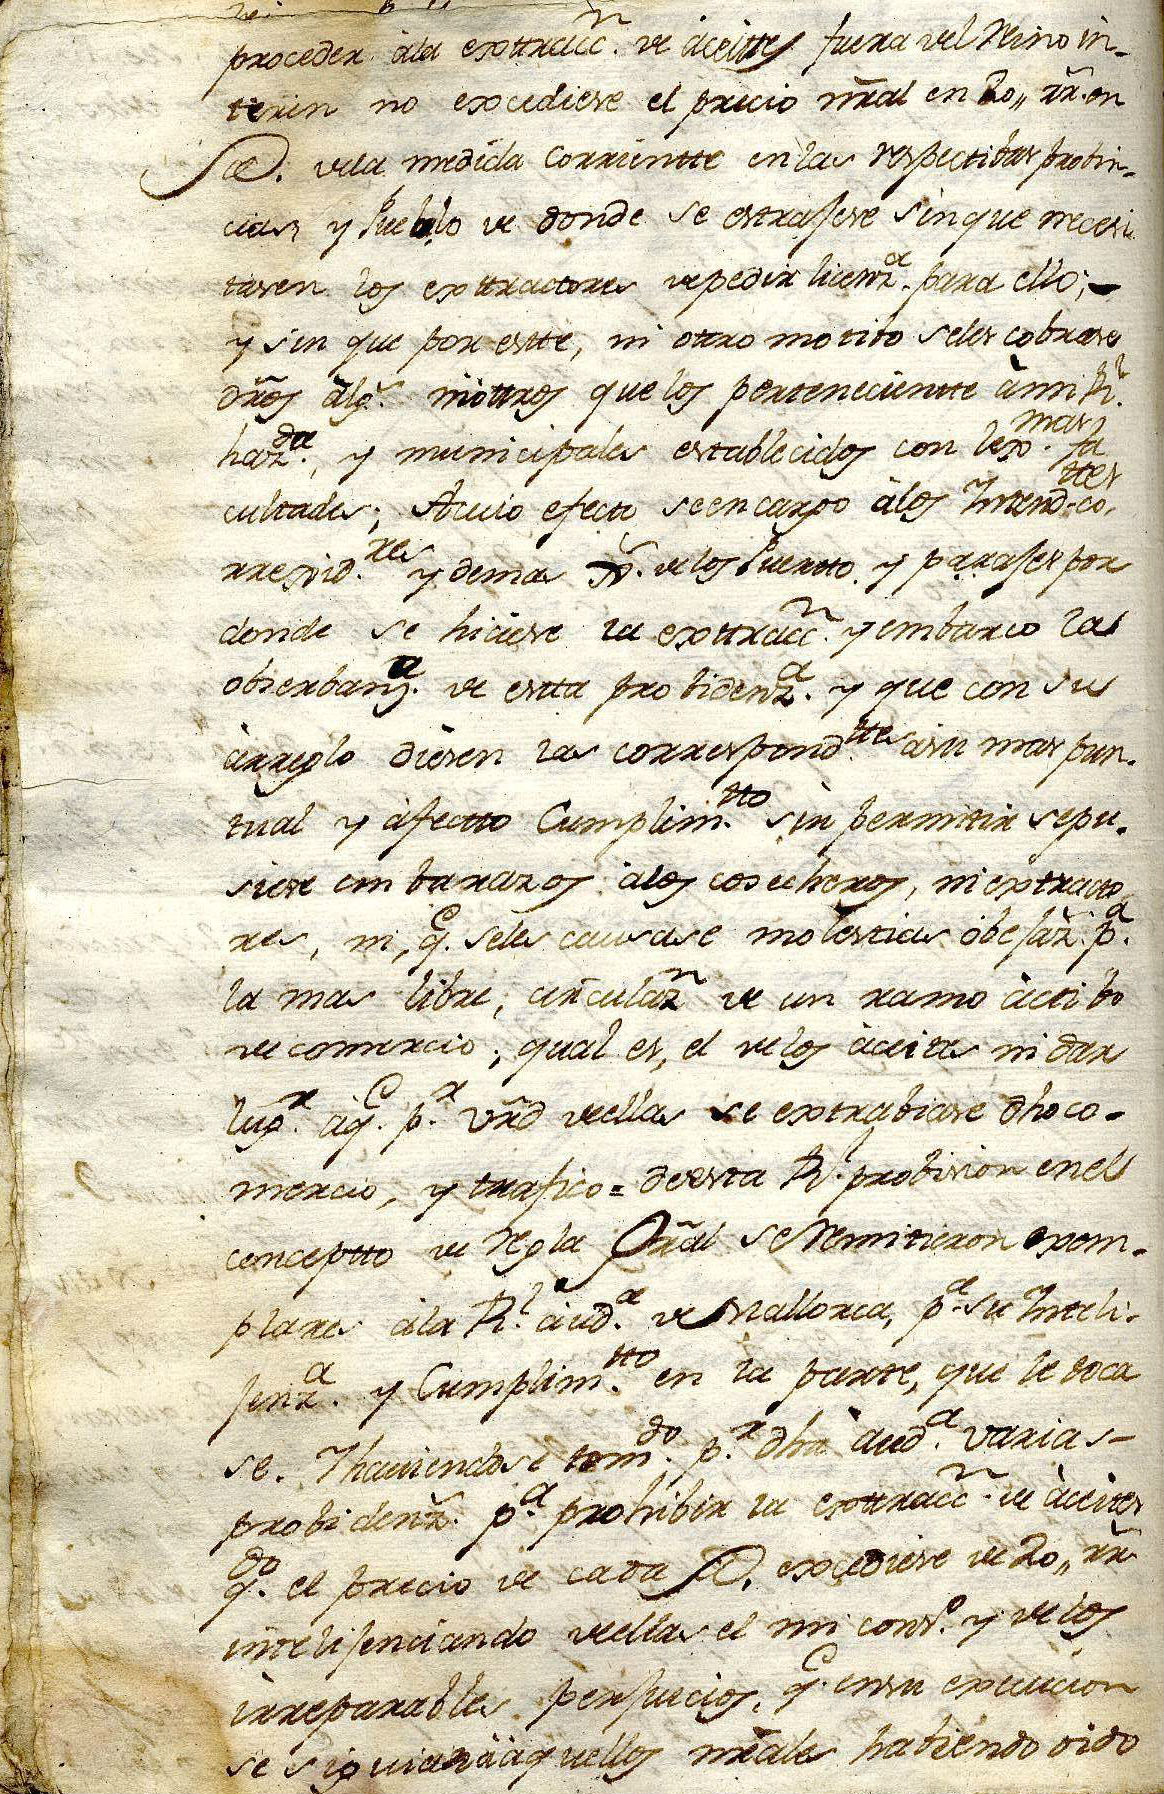 proceder âla exttracc.n de àceittes fuera del Reino in-
terin no excediese el precio nr̃al en 20,, rr̃. on
@. dela medida Corrientte enlas respectibas probin-
cias y Pueblo de donde se estrajese sinque necesi
tasen los exttractores depedir licenz.a para ello;
y sin que por estte, ni ottro motibo seles cobrase
dr̃os àlg.s niottros quelos pertenecientte àmi Rl.
haz.da, y municipales establecidos con lex.mas fa
cultades; Acuio efecto seencargo àlos Intend.ttes co-
rregid.res y demas delos Puertto y parajes por
donde se hiciese la exttracc.n y embarco las
obserbanz.a de estta probidenz.a y que con su
àrreglo diesen las correspond.ttes àsu mas pun-
tual y àfectto Cumplim.tto sin permitir sepu-
siese embarazos àlos cosecheros, ni extracto
res, ni, q. seles causase molestias óbejaz.n p.a
la mas libre, circulaz.n de un ramo àctibo
de comercio, qual es, el delos àceites ni dar
lug.r àq. p.r vr̃d deellas se extrabiase dho co-
mercio, y trafico = deesta Rl. probision enel
conceptto de Regla Gr̃al se Remitieron exem-
plares àla Rl. àud.a de Mallorca, p.a su Inteli-
jenz.a y Cumplim.tto en la parte, que le toca
se. Ihaviendose tom.do p.r dha àud.a varias-
probidenz.s p.a prohibir la exttracc.n de àceites
q.do el precio de cada @. excediese de 20,, rr̃
inteligenciando deellas el mi cons.o y delos
irreparables perjuicios, q. ensu execucion
se siguian àaquellos nr̃ales habiendo oido